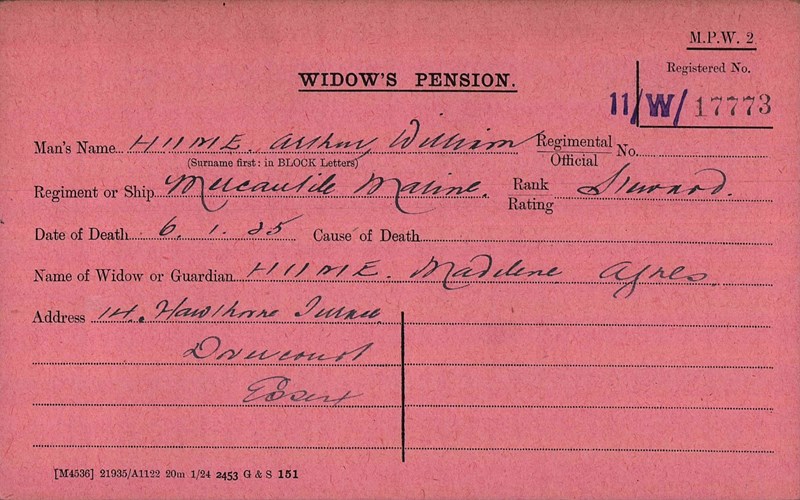 M.P.W. 2
WIDOW'S PENSION.
Registered No.
11/W/17773
Man's Name HUME. Arthur William Regimental Official No.
(Surname first: in BLOCK Letters)
Regiment or Ship Mercantile Marine. Rank Rating Steward.
Date of Death 6. 1. 25 Cause of Death
Name of Widow or Guardian HUME. Madelene Agnes.
Address 14. Hawthorne Terrace
Dovercourt
Essex
[M4536] 21935/A1122 20m 1/24 2453 G & S 151